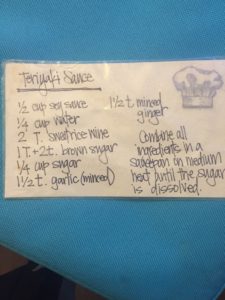 Teriyaki Sauce
1/2 cup soy sauce
1/4 cup water
2 T. sweet rice wine
1 T. + 2 t. brown sugar
1/4 cup sugar
1 1/2 t. garlic (minced)
1 1/2 t. minced
ginger
Combine all
ingredients in a
saucepan on medium
heat until the sugar
is dissolved.